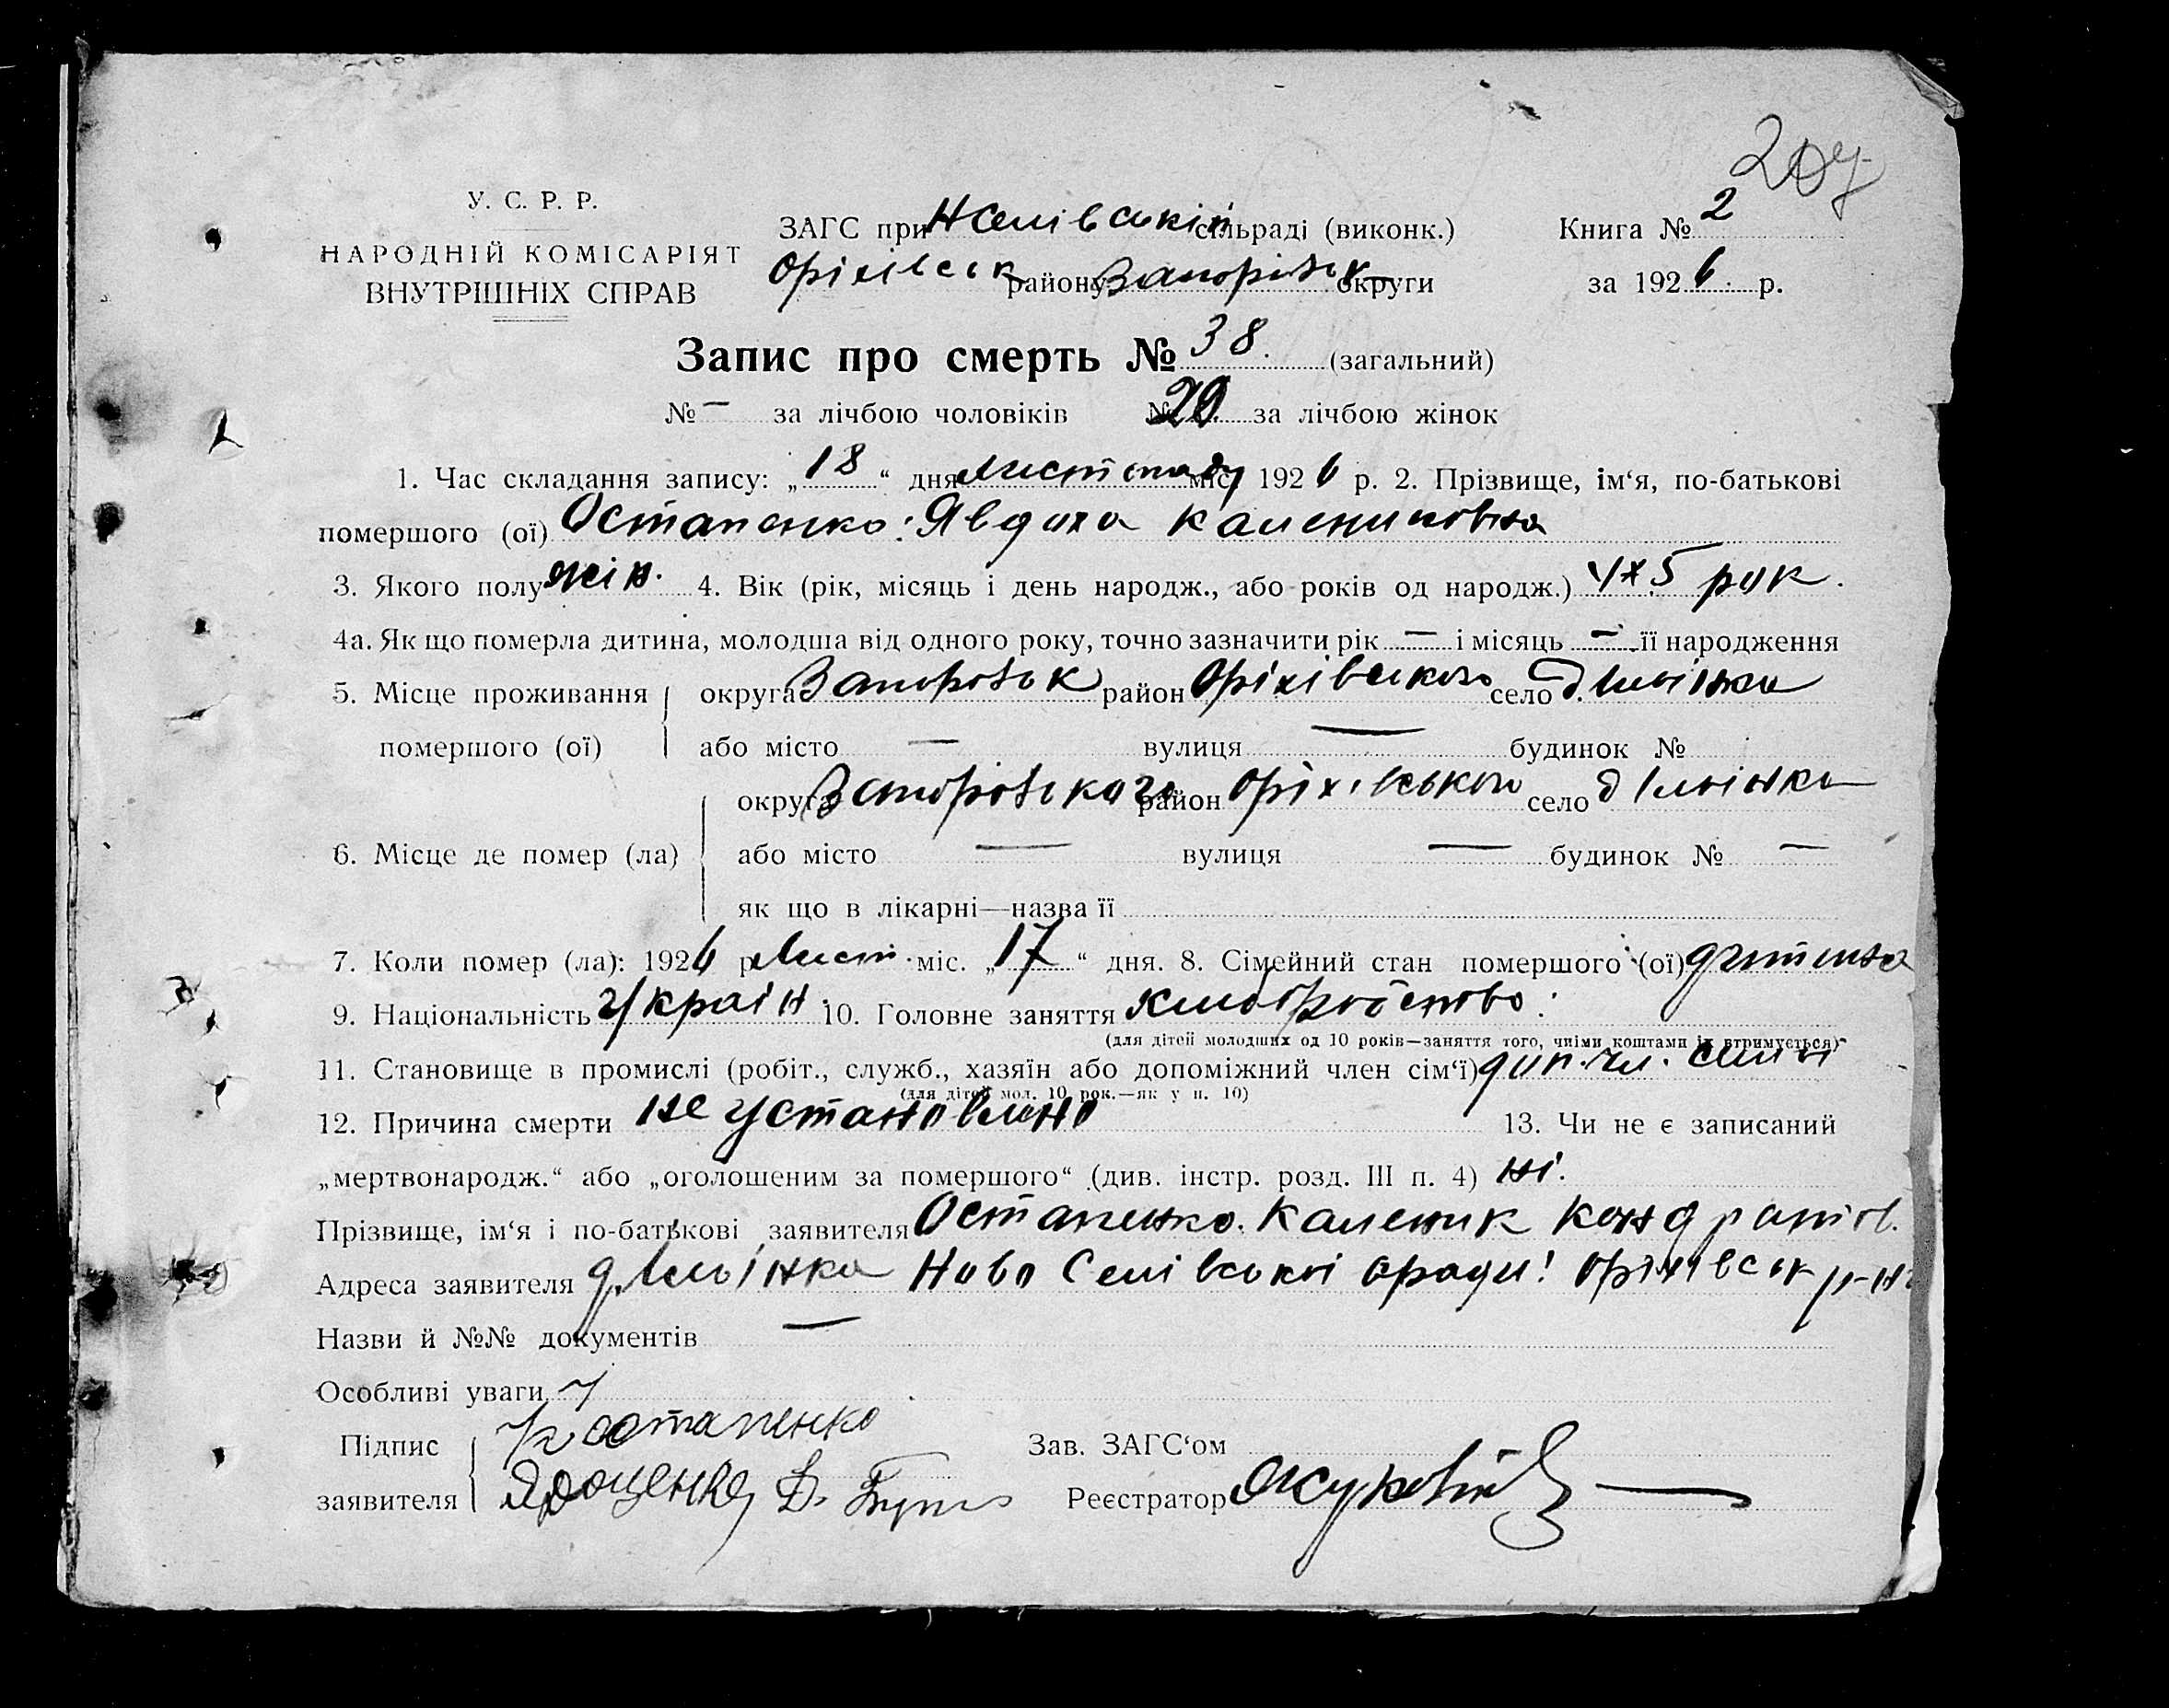 207
У. С. Р. Р.
НАРОДНІЙ КОМІСАРІЯТ
ВНУТРІШНІХ СПРАВ
ЗАГС при НСелівській сільраді (виконк.)
Оріхівськ району Запорізьк округи
Книга № 2
за 1926 р.
Запис про смерть № 38. (загальний)
№ — за лічбою чоловіків № 20 за лічбою жінок
1. Час складання запису: „18“ дня листопаду міс. 1926 р. 2. Прізвище, ім‘я, по-батькові
помершого (ої) Остапенко: Явдоха Калениковна
3. Якого полу жін. 4. Вік (рік, місяць і день народж., або років од народж.) рок.
4а. Як що померла дитина, молодша від одного року, точно зазначити рік — і місяць — її народження
5. Місце проживання помершого (ої) округа Запорізьк район Оріхівського село
або місто — вулиця — будинок №
6. Місце де помер (ла) округа Запорізького район Оріхівського село
або місто — вулиця — будинок № —
як що в лікарні—назва її
7. Коли помер (ла): 1926 р. Лист. міс. „17“ дня. 8. Сімейний стан помершого (ої) дитина
9. Національність Україн. 10. Головне заняття хліборобство:
(для дітей молодших од 10 років—заняття того, чиїми коштами їх втримується)
11. Становище в промислі (робіт., служб., хазяїн або допоміжний член сім‘ї) доп. чл. сімї
(для дітей мол. 10 рок.—як у п. 10)
12. Причина смерти не установлино 13. Чи не є записаний
„мертвонародж.“ або „оголошеним за помершого“ (див. інстр. розд. III п. 4) ні.
Прізвище, ім‘я і по-батькові заявителя Остапенко. Каленик Кондратов.
Адреса заявителя Ново Селівської Оріхівськ р-н
Назви й №№ документів —
Особливі уваги
Підпис заявителя К Остапенко
Зав. ЗАГС‘ом
Реєстратор